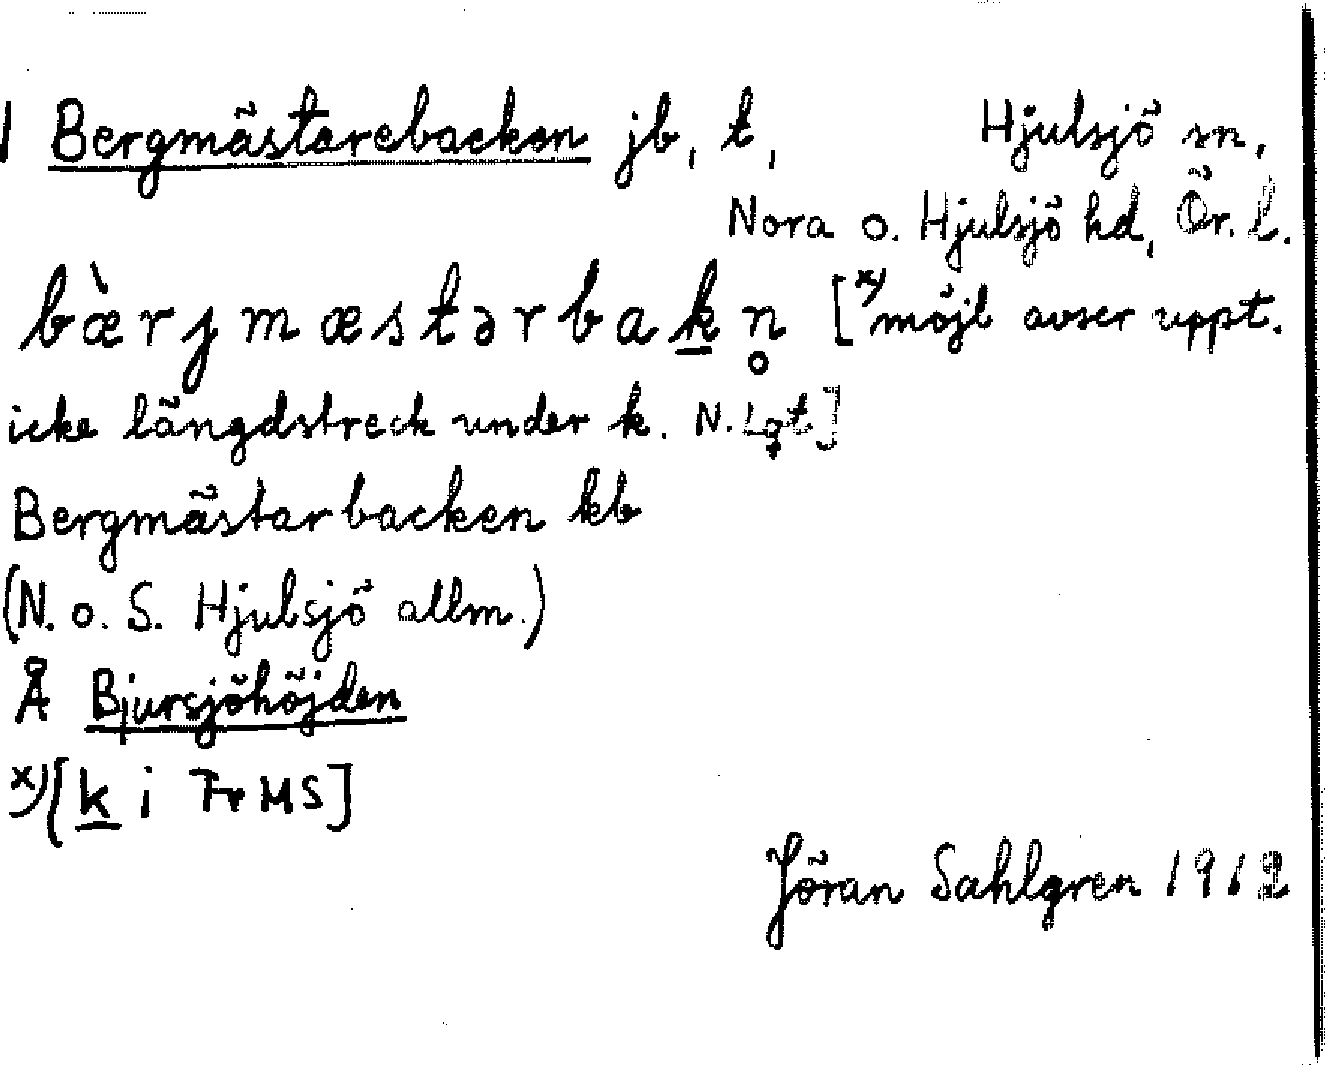 Bergmästarebacken jb, t, Hjulsjö sn,
Nora o. Hjulsjö hd, Ör. l.
bæ̀rȷmæstərbak̲n̥ [x) möjl avser uppt.
icke längdstreck under k. N. Lgt]
Bergmästarbacken kb
(N. o. S. Hjulsjö allm.)
Å Bjursjöhöjden
x) [k i FrMS]
Jöran Sahlgren 1912